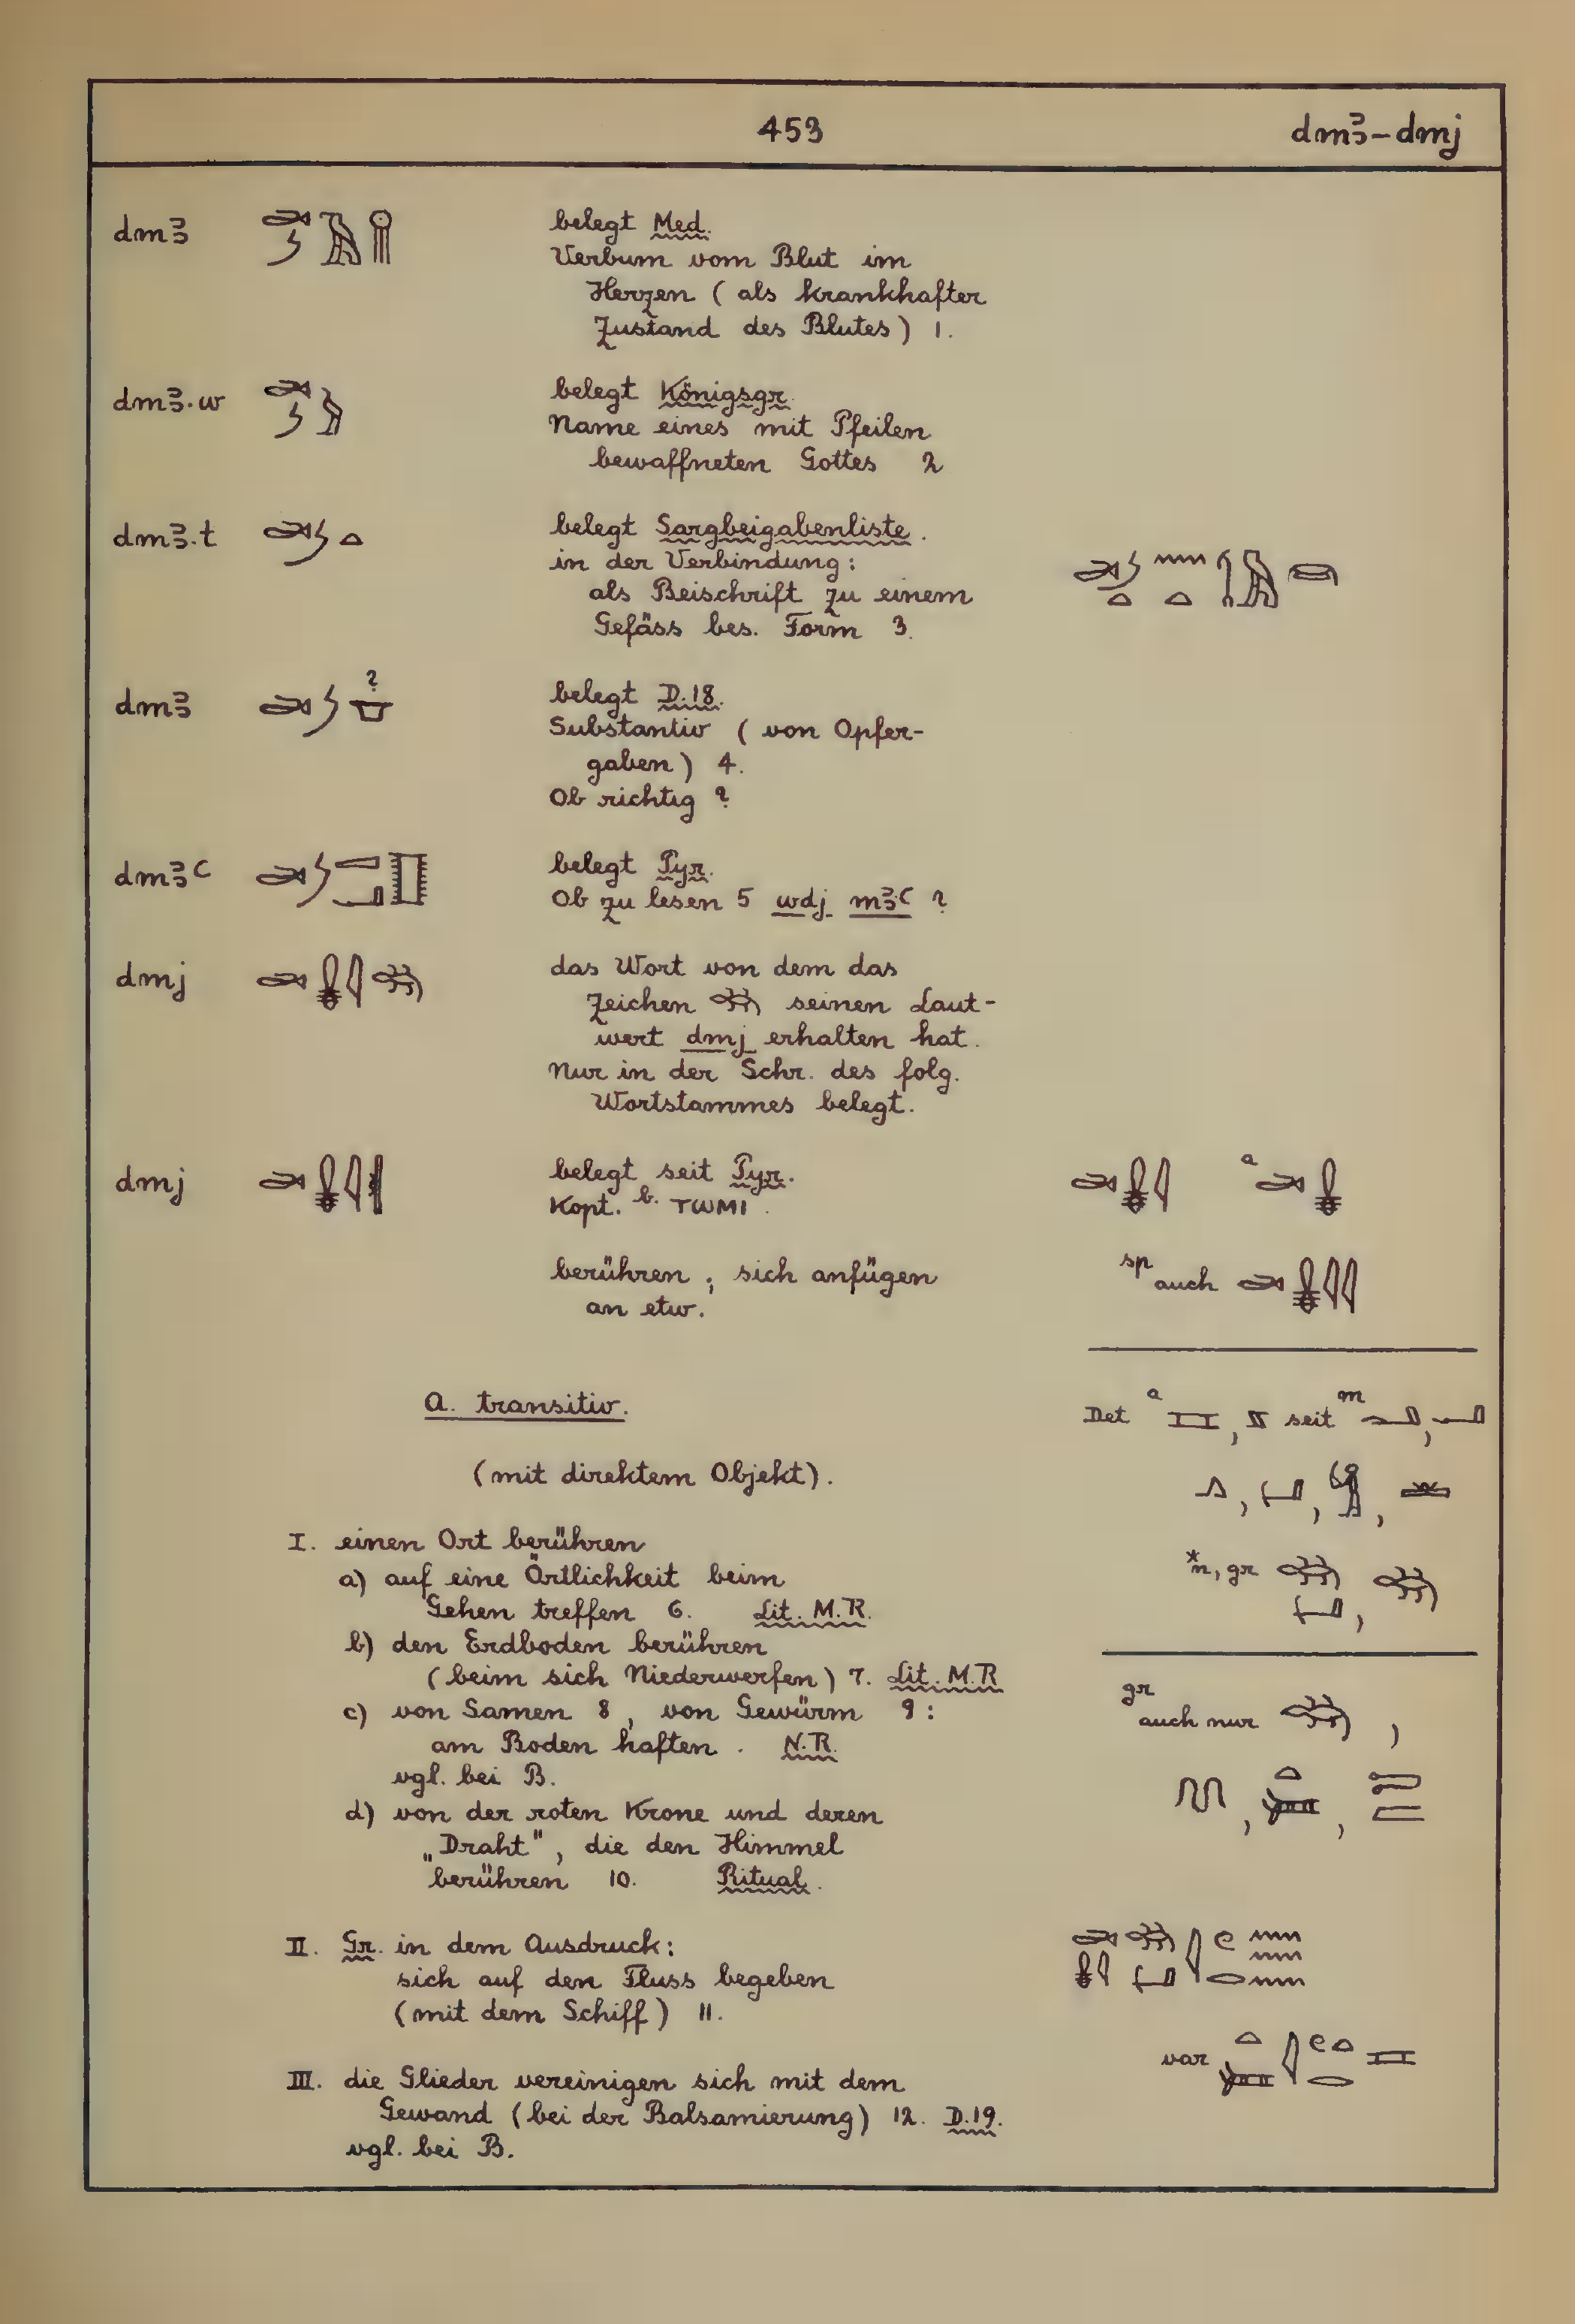 453 dmꜣ-dmj
dmꜣ belegt Med.
Verbum vom Blut im
Herzen (als krankhafter
Zustand des Blutes) 1.
dmꜣ.w belegt Königsgr.
Name eines mit Pfeilen
bewaffneten Gottes 2
dmꜣ.t belegt Sargbeigabenliste.
in der Verbindung:
als Beischrift zu einem
Gefäss bes. Form 3.
dmꜣ ? belegt D.18.
Substantiv (von Opfer-
gaben) 4.
Ob richtig?
dmꜣꜥ belegt Pyr.
Ob zu lesen 5 wdj mꜣꜥ ?
dmj das Wort von dem das
Zeichen seinen Laut-
wert dmj erhalten hat.
Nur in der Schr. des folg.
Wortstammes belegt.
dmj belegt seit Pyr. a
Kopt. b. ⲧⲱⲙⲓ.
berühren; sich anfügen sp auch
an etw.
A. transitiv. Det a , seit m ,
(mit direktem Objekt). , , ,
I. einen Ort berühren *n, gr ,
a) auf eine Örtlichkeit beim
Gehen treffen 6. Lit. M.R.
b) den Erdboden berühren
(beim sich Niederwerfen) 7. Lit. M.R
c) von Samen 8, von Gewürm 9: gr auch nur ,
am Boden haften. N.R.
vgl. bei B. , ,
d) von der roten Krone und deren
„Draht", die den Himmel
berühren 10. Ritual.
II. Gr. in dem Ausdruck:
sich auf den Fluss begeben
(mit dem Schiff) 11.
var
III. die Glieder vereinigen sich mit dem
Gewand (bei der Balsamierung) 12. D.19.
vgl. bei B.